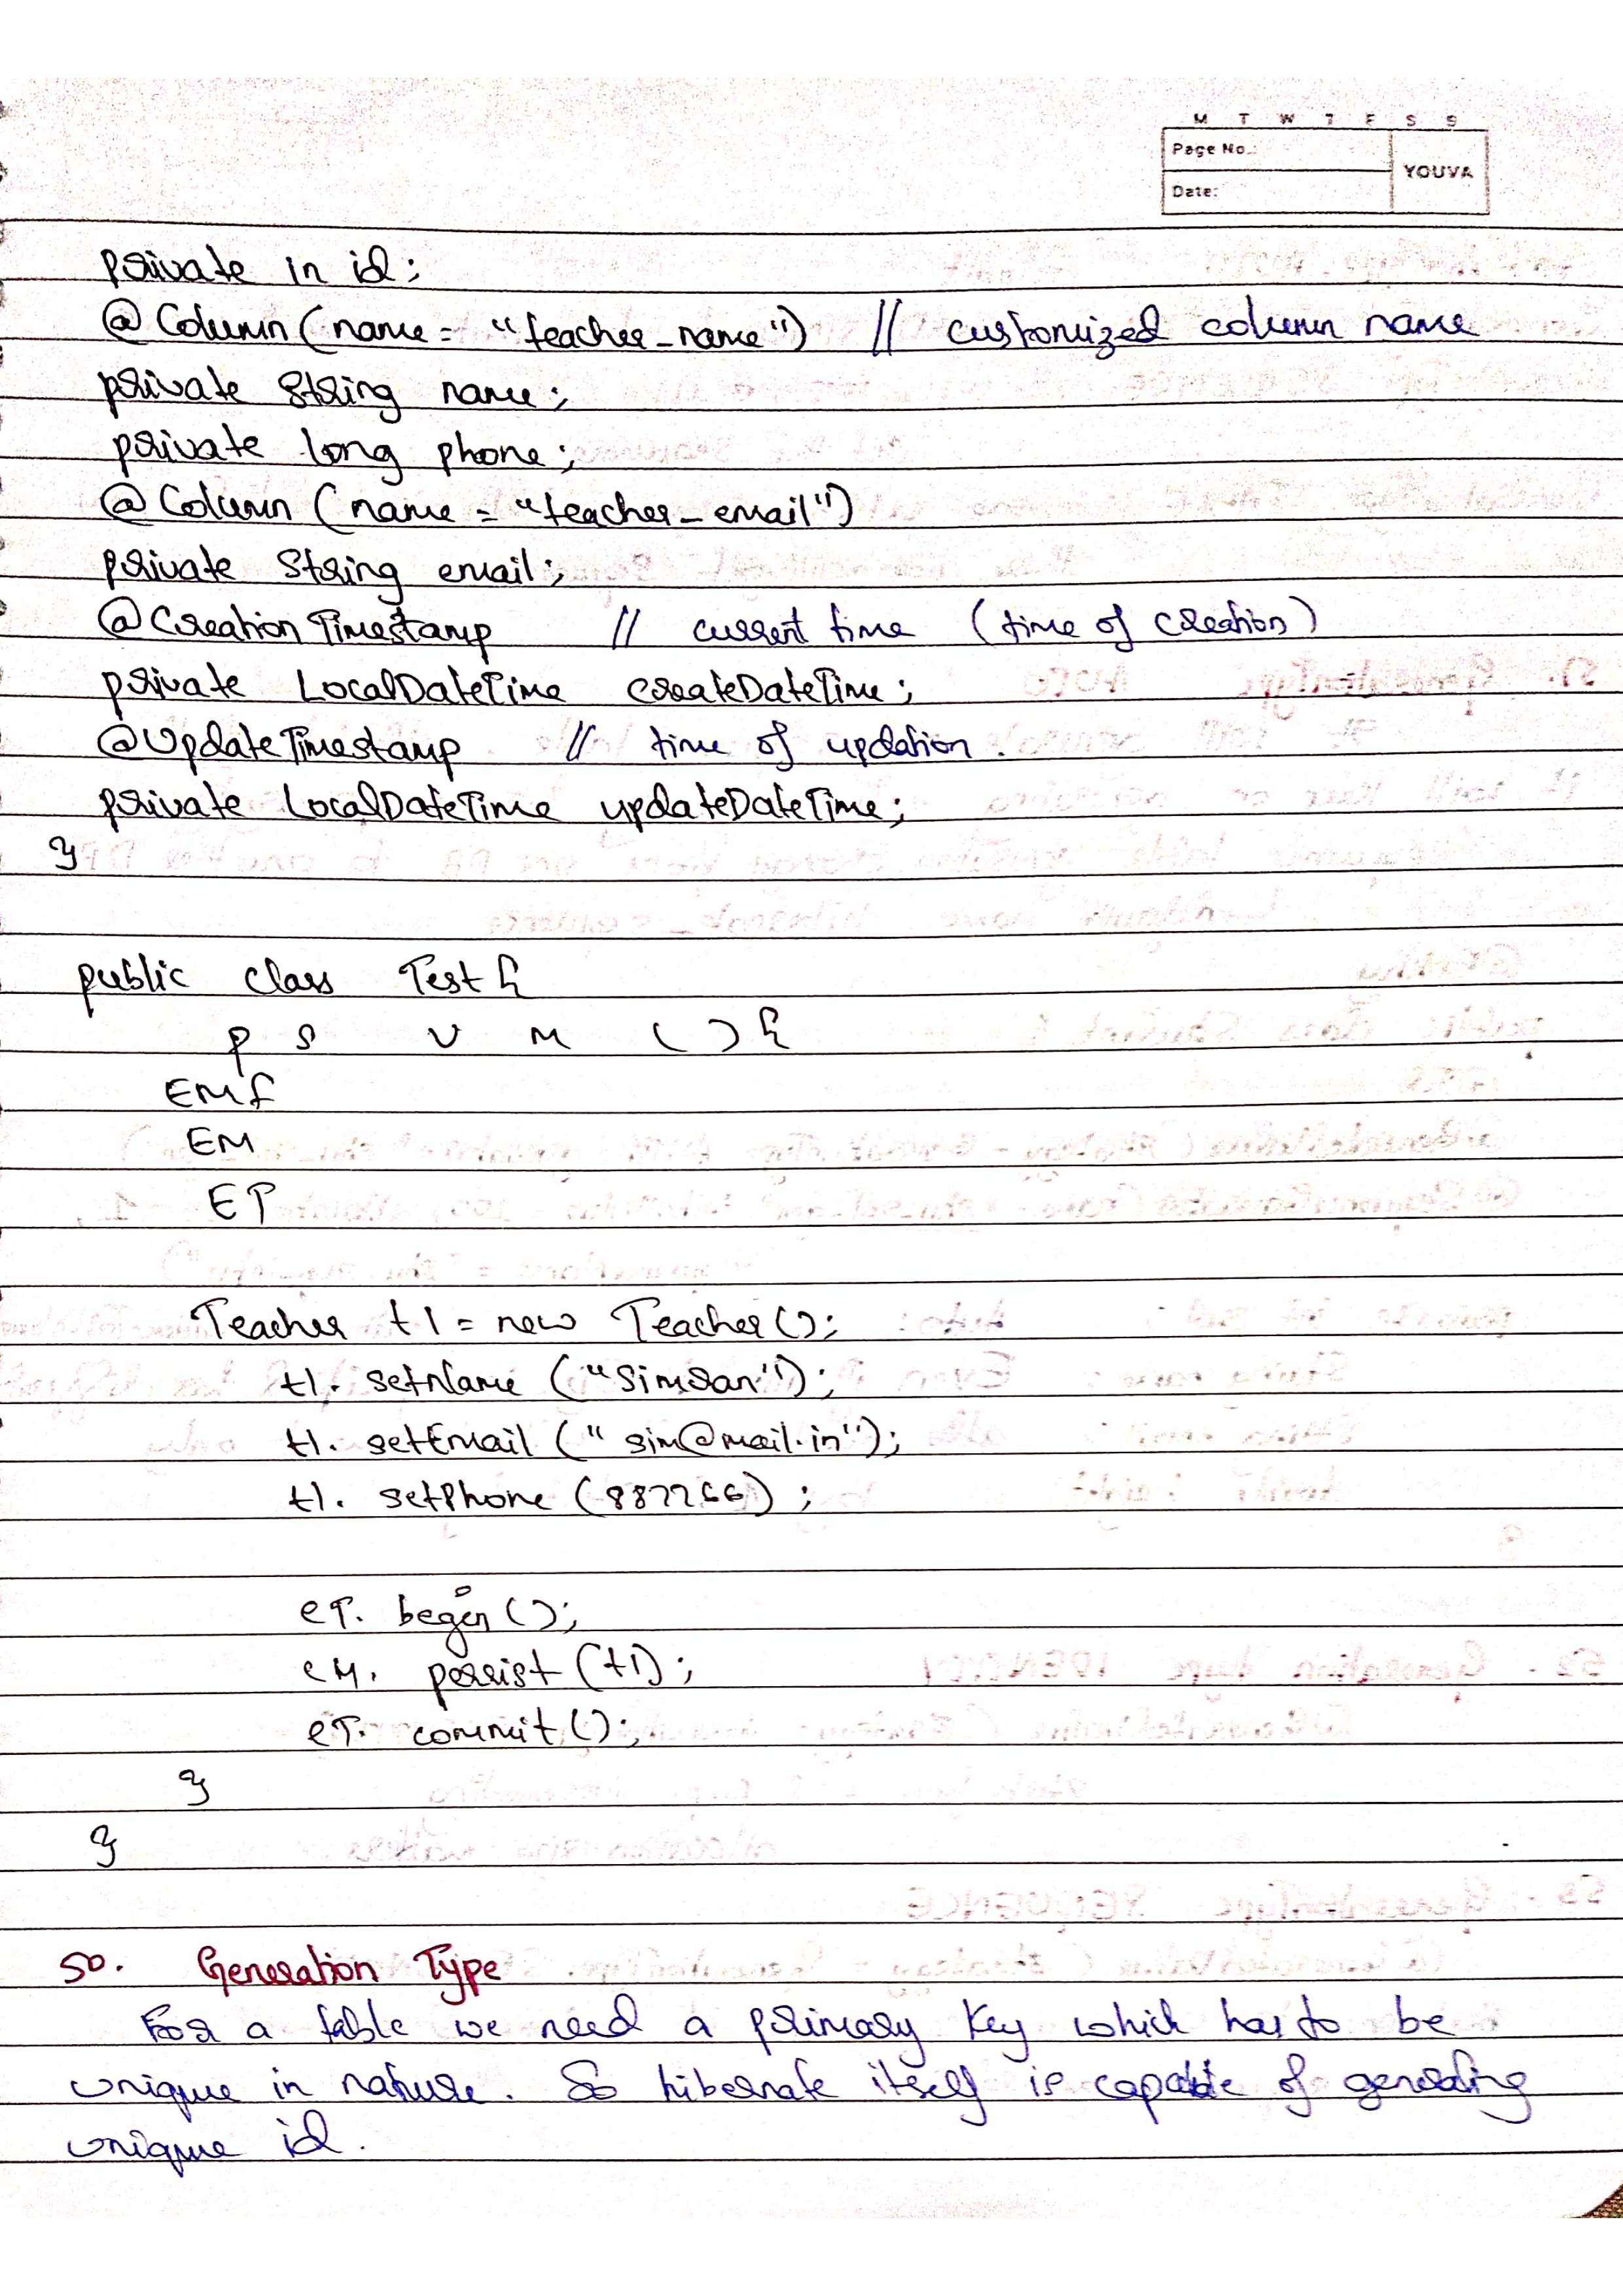 M T W T F S S
Page No.:
YOUVA
Date:
private in id;
@Column(name = "teacher_name") // customized column name
private String name;
private long phone;
@Column (name = "teacher_email")
private String email;
@CreationTimestamp // current time (time of creation)
private LocalDateTime createDateTime;
@UpdateTimestamp // time of updation.
private LocalDateTime updateDateTime;
}
public class Test {
p s v m () {
EMF
EM
ET
Teacher t1 = new Teacher();
t1. setName ("Simran");
t1. setEmail ("sim@mail.in");
t1. setPhone (887766);
eT. begin ();
eM. persist (t1);
eT. commit ();
}
}
50. Generation Type
For a table we need a primary key which has to be
unique in nature. So hibernate itself is capable of generating
unique id.